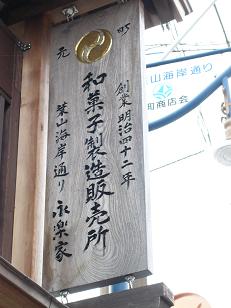 元町
創業明治四十二年
和菓子製造販売所
葉山海岸通り
永楽家
山海岸通り
町商店会